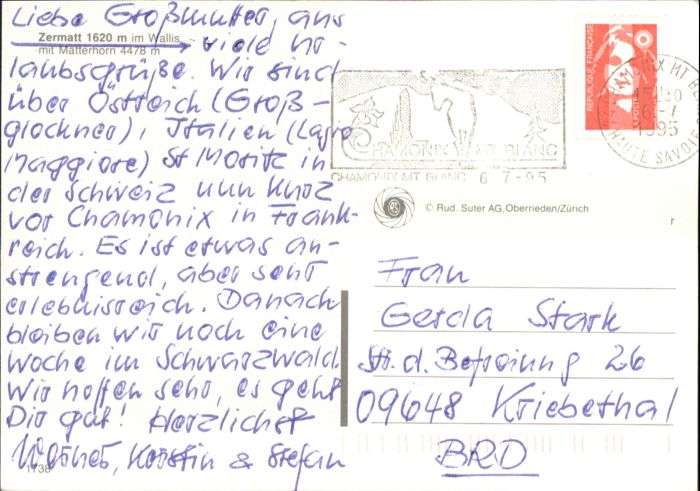 Liebe Großmutter, aus
Zermatt 1620 m im Wallis
mit Matterhorn 4478 m
viele Ur-
laubsgrüße. Wir sind
über Östreich (Groß-
glockner), Italien (Lago
Maggiore) St Moritz in
der Schweiz nun kurz
vor Chamonix in Frank-
reich. Es ist etwas an-
strengend, aber sehr
erlebnisreich. Danach
bleiben wir noch eine
Woche im Schwarzwald.
Wir hoffen sehr, es geht
Dir gut! Herzlichst
Kerstin & Stefan
1738
REPUBLIQUE FRANÇAISE
CHAMONIX MT BLANC
CHAMONIX MT BLANC 6 7-95
1995
HAUTE SAVOIE
© Rud. Suter AG, Oberrieden/Zürich
r
Frau
Gerda Stark
Str. d. Befreiung 26
09648 Kriebethal
BRD